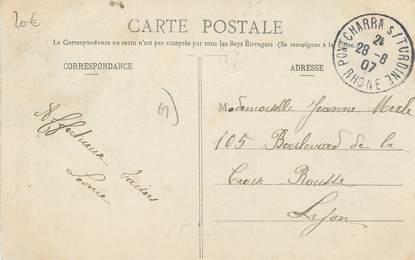 20€
CARTE POSTALE
La Correspondance au recto n'est pas acceptée par tous les Pays Étrangers (Se renseigner à la Poste)
CORRESPONDANCE
ADRESSE
PONTCHARRA S/TURDINE
24
28-8
07
RHONE
69
Mademoiselle Jeanne Merle
105 Boulevard de la
Croix Rousse
Lyon
Affectueux baisers
Leonie